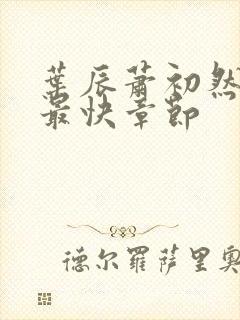 葉辰蕭初然
最快章節
德尔羅薩里奧